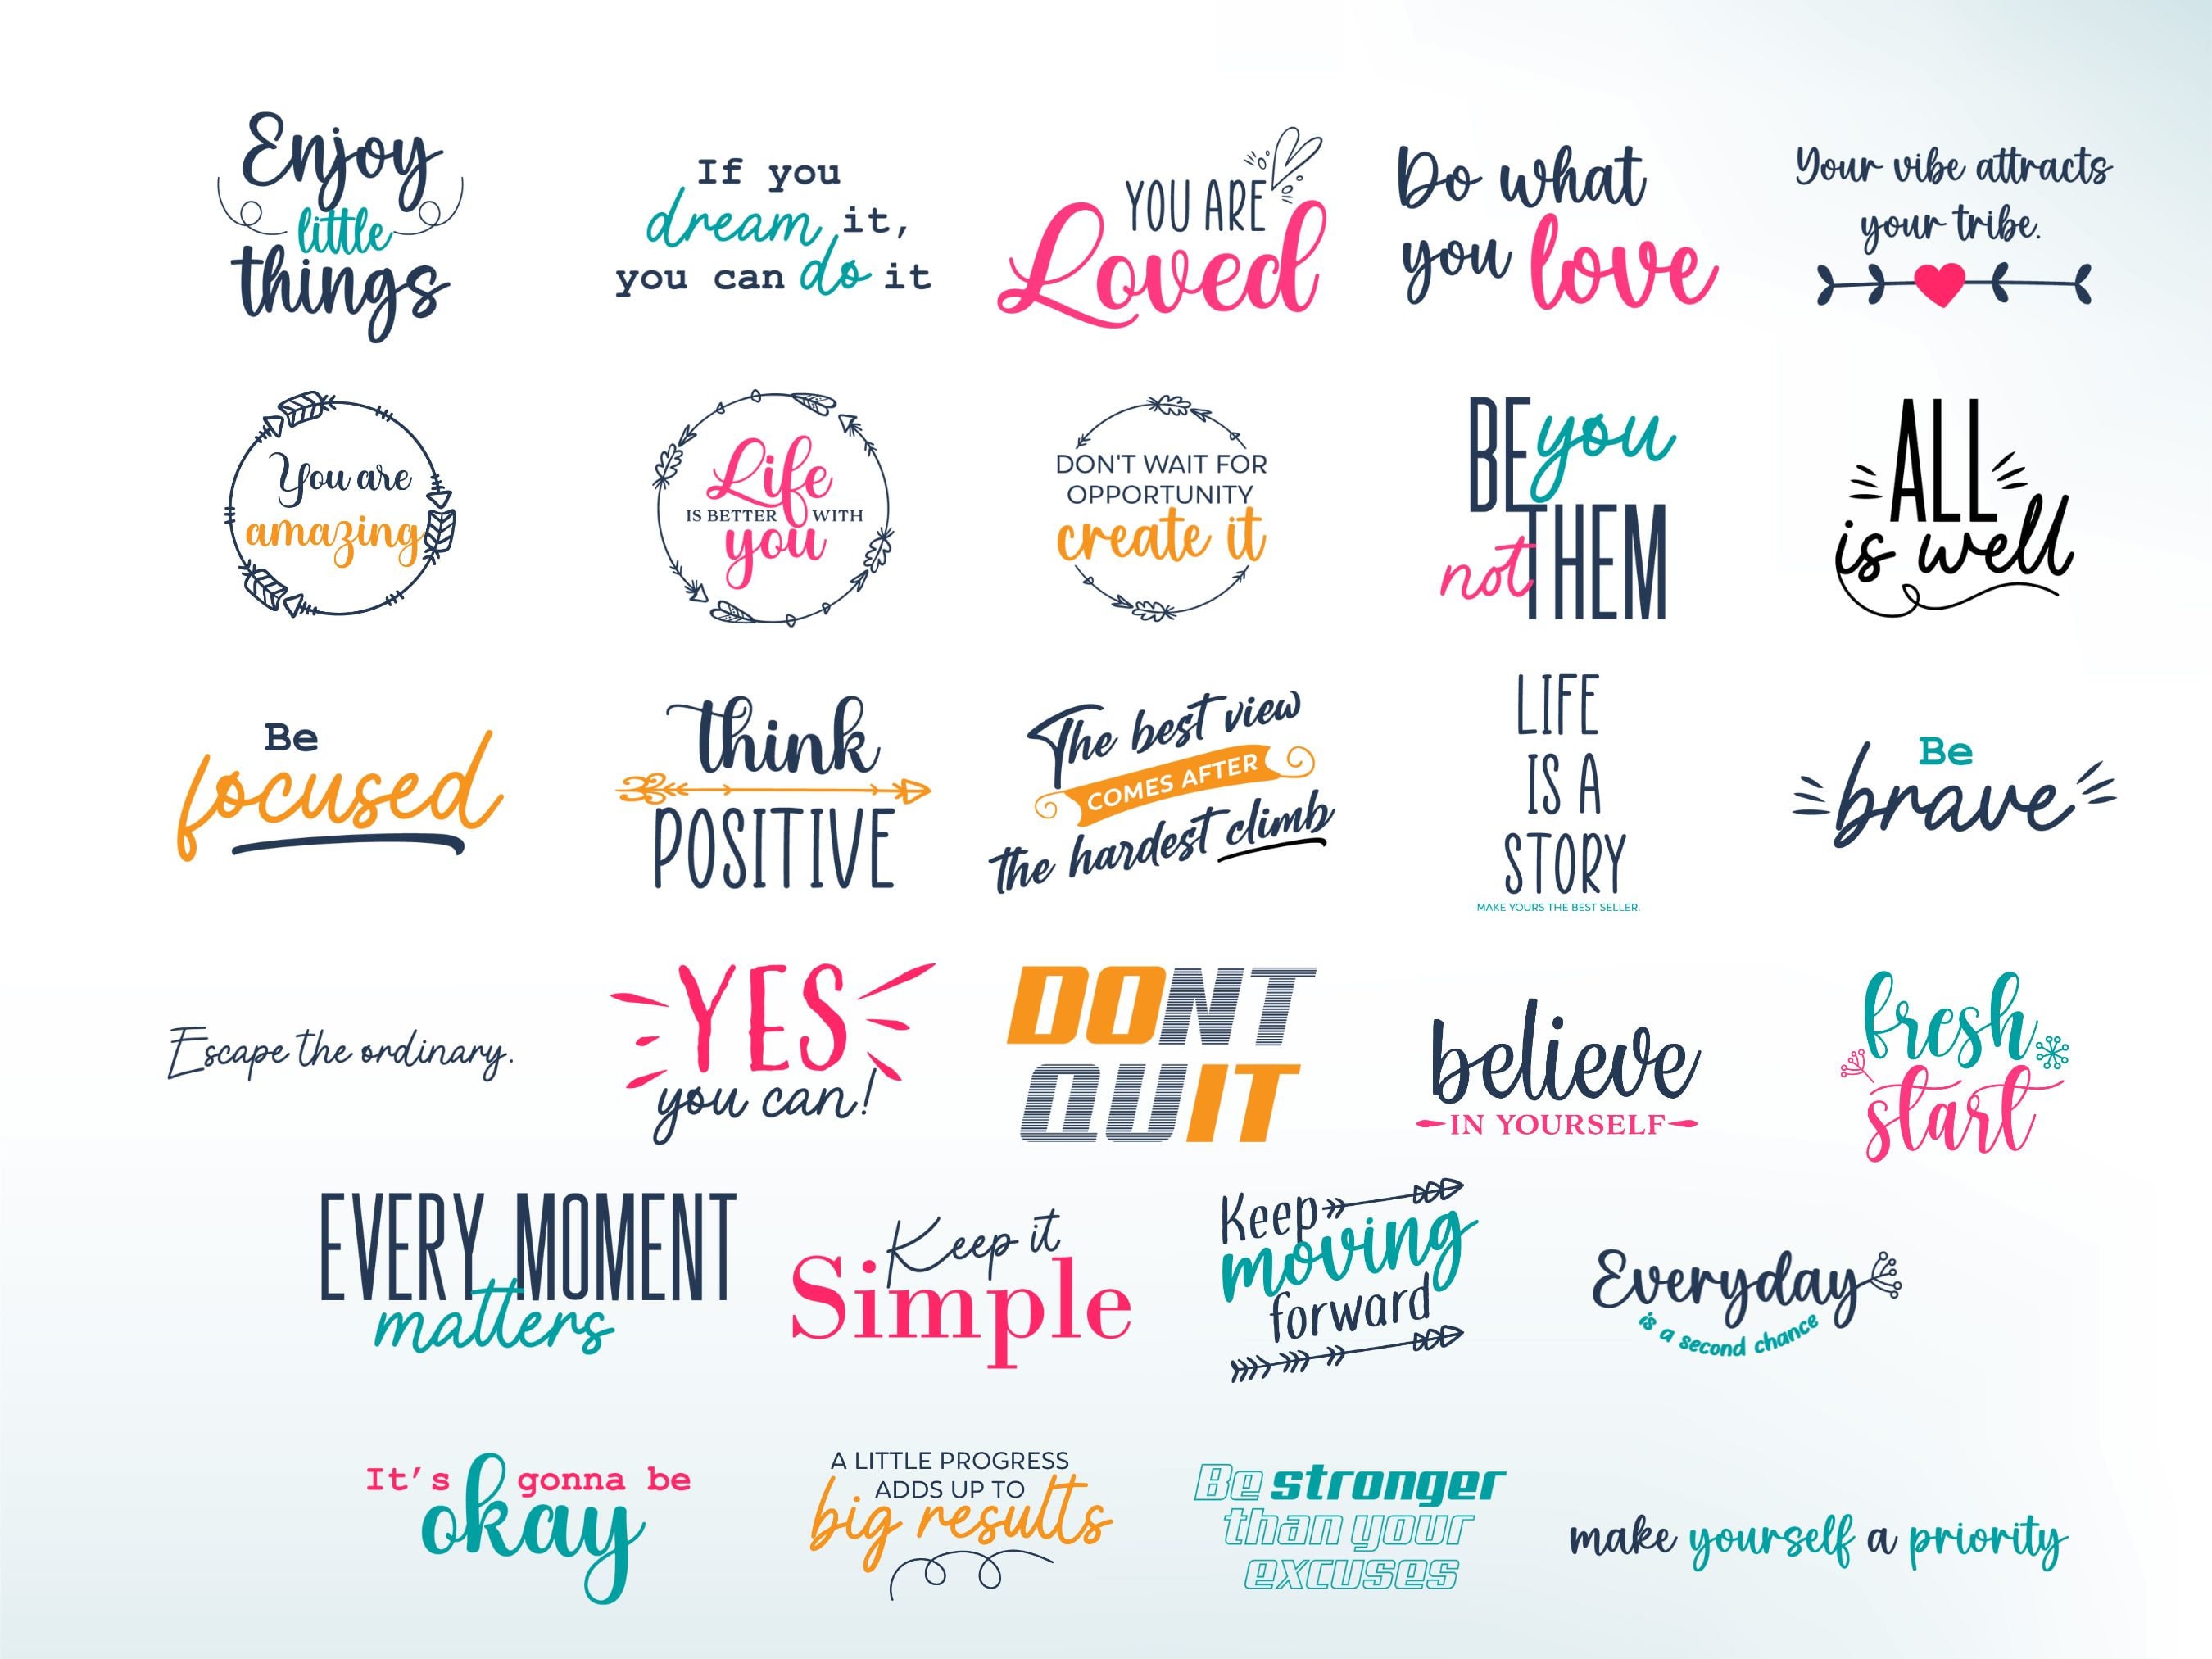 Enjoy
little
things
If you
dream it,
you can do it
YOU ARE
Loved
Do what
you love
Your vibe attracts
your tribe.
You are
amazing
Life
IS BETTER WITH
you
DON'T WAIT FOR
OPPORTUNITY
create it
BE you
not THEM
ALL
is well
Be
focused
think
POSITIVE
The best view
COMES AFTER
the hardest climb
LIFE
IS A
STORY
MAKE YOURS THE BEST SELLER.
Be
brave
Escape the ordinary.
YES
you can!
DONT
QUIT
believe
IN YOURSELF
fresh
start
EVERY MOMENT
matters
Keep it
Simple
Keep
moving
forward
Everyday
is a second chance
It's gonna be
okay
A LITTLE PROGRESS
ADDS UP TO
big results
Be stronger
than your
excuses
make yourself a priority